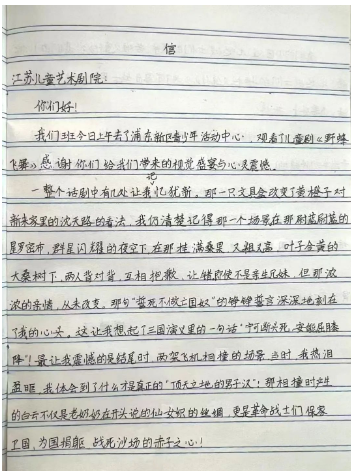 信
江苏儿童艺术剧院:
你们好!
我们班今日上午去了浦东新区青少年活动中心,观看了儿童剧《野蜂
飞舞》感谢你们给我们带来的视觉盛宴与心灵震撼。
一整个话剧中有几处让我记忆犹新,那一只文具盒改变了黄橙子对
新来家里的沈天路的看法,我仍清楚记得那一个场景在那蔚蓝蔚蓝的
星罗密布,群星闪耀的夜空下在那挂满桑果,又粗又高,叶子金黄的
大桑树下,两人背对背,互相抱歉,让错即使不是亲生兄妹,但那浓
浓的亲情,从未改变,那句"誓死不做亡国奴"的铮铮誓言深深地刻在
了我的心头。这让我想起了三国演义里的一句话"宁断头死,安能屈膝
降"!最让我震憾的是结尾时,两架飞机相撞的场景,当时,我热泪
盈眶,我体会到了什么才是真正的"顶天立地的男子汉"!那相撞时产生
的白云不仅是老奶奶在开头说的仙女织的丝绸,更是革命战士们保家
卫国,为国捐躯,战死沙场的赤子之心!